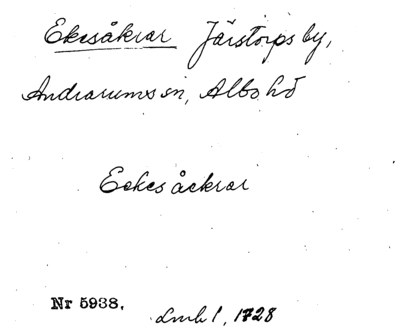 Ekesåkrar Järstorps by,
Andrarums sn, Albo hd
Eckes åckrar
Nr 5938.
Lmh 1, 1728